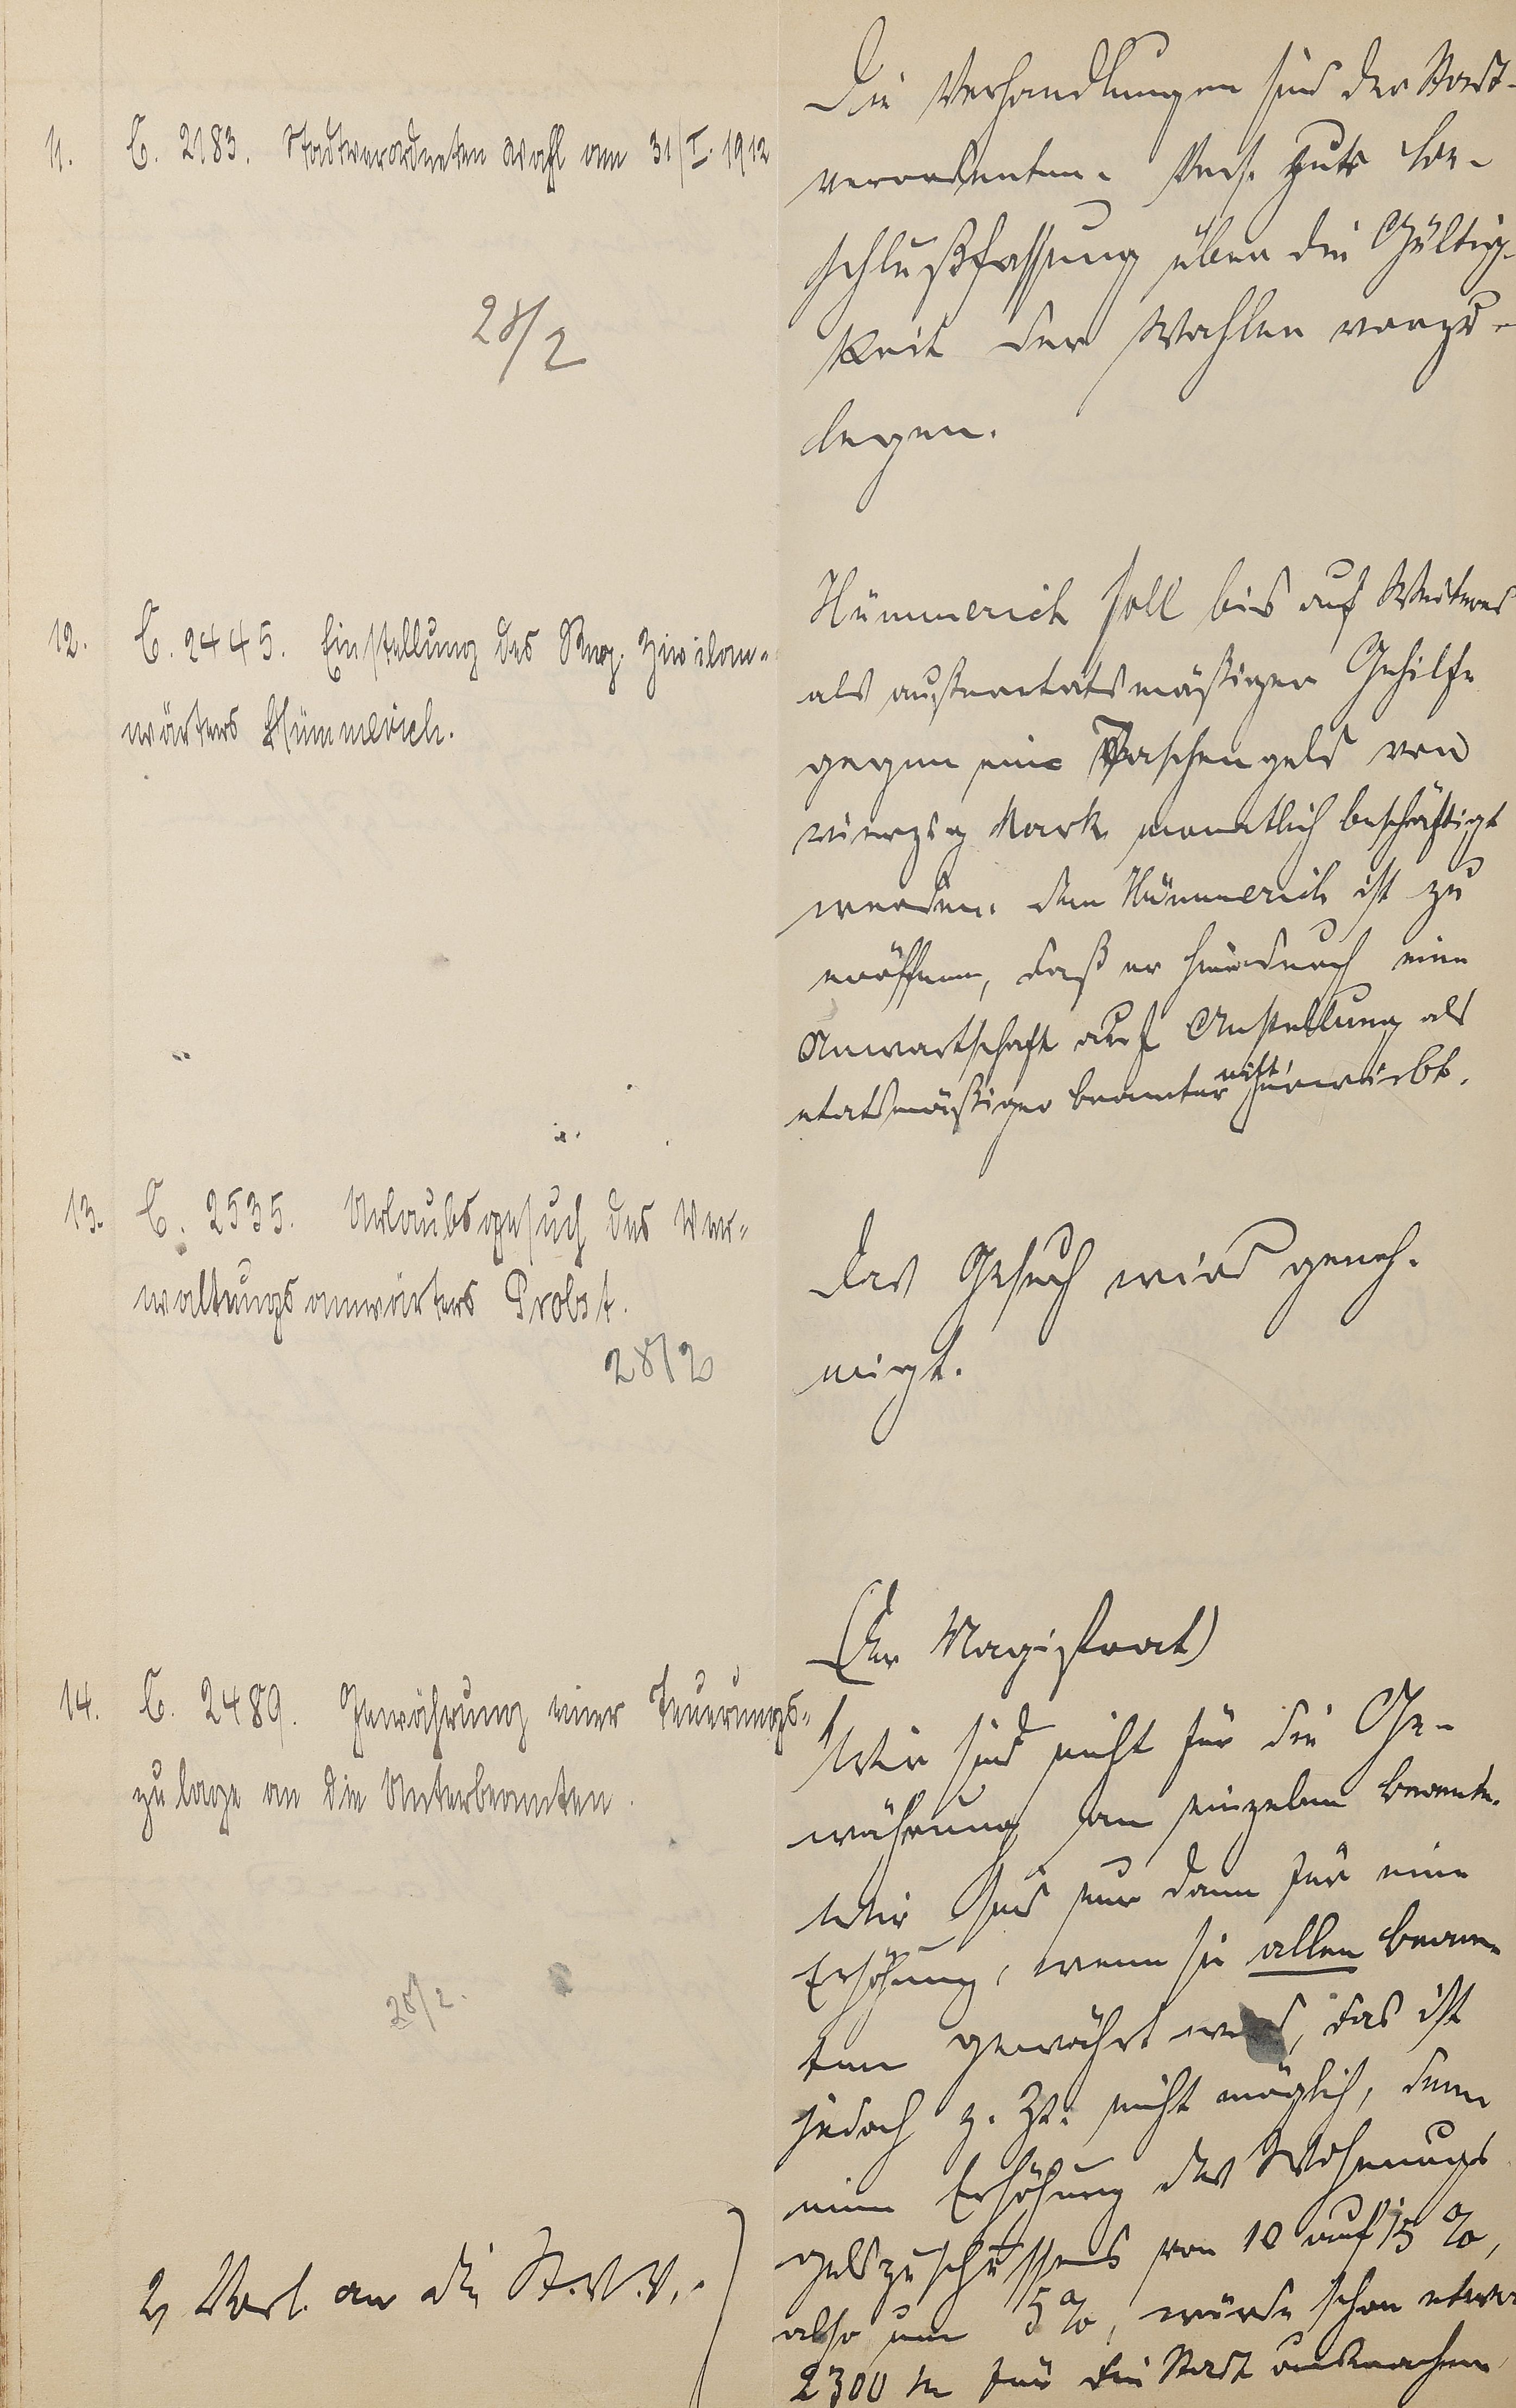 11. C. 2183. Stadtverordneten Wahl am 31/I. 1912
28/2
Die Verhandlungen sind der Stadt-
verordneten- Vers. zur Be-
schlußfassung über die Gültig-
keit der Wahlen vorzu-
legen.
12. C. 2445. Einstellung des Reg. Zivilan-
wärters Hümmerich.
Hümmerich soll bis auf Weiteres
als außeretatsmäßiger Gehilfe
gegen ein Taschengeld von
vierzig Mark monatlich beschäftigt
werden. Dem Hümmerich ist zu
eröffnen, daß er hierdurch eine
Anwartschaft auf Anstellung als
etatsmäßiger Beamter nicht erwirbt.
13. C. 2535. Urlaubsgesuch des Ver-
waltungsanwärters Probst.
28/2
Das Gesuch wird geneh-
migt.
14. C. 2489. Gewährung einer Teuerungs-
zulage an die Unterbeamten.
28/2.
2, Vorl. an die St.V.V.
(Der Magistrat)
Wir sind nicht für die Ge-
währung an einzelne Beamte.
Wir sind nur dann für eine
Erhöhung, wenn sie allen Beam-
ten gewährt wird, das ist
jedoch z. Zt. nicht möglich, denn
eine Erhöhung des Wohnungs
geldzuschusses von 10 auf 15 %,
also um 5 %, würde schon etwa
2300 M für die Stadt ausmachen